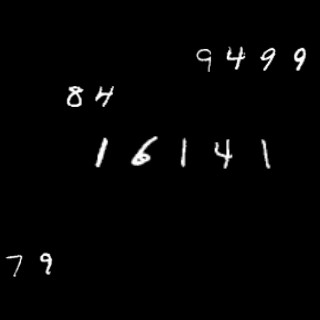 9499
84
16141
79